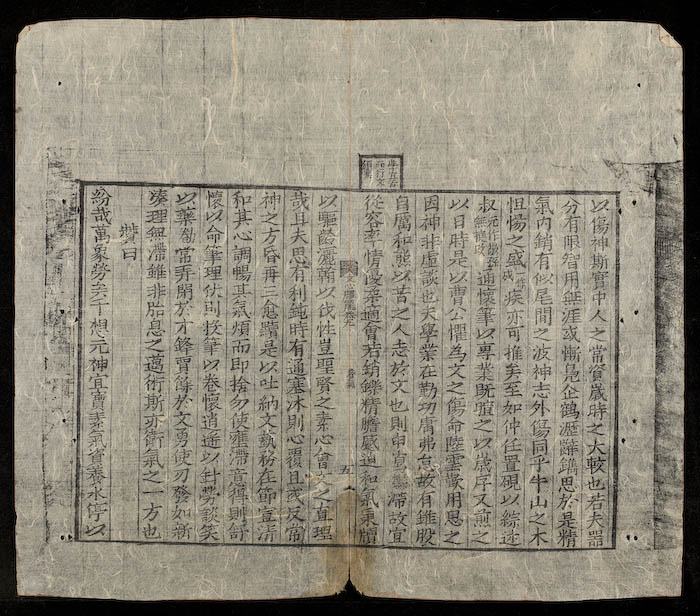 以傷神斯實中人之常資歲時之大較也若夫器
分有限智用無涯或慚鳧企鶴瀝辭鐫思於是精
氣內銷有似尾閭之波神志外傷同乎牛山之木
怛惕之盛疾亦可推矣至如仲任置硯以綜述
叔通懷筆以專業既暄之以歲序又煎之
以日時是以曹公懼為文之傷命陸雲歎用思之
困神非虛談也夫學業在勤功庸弗怠故有錐股
自厲和熊以苦之人志於文也則申宣鬱滯故宜
從容率情優柔適會若銷鑠精膽蹙迫和氣秉牘
五
以驅齡灑翰以伐性豈聖賢之素心會文之直理
哉且夫思有利鈍時有通塞沐則心覆且或反常
神之方昏再三愈黷是以吐納文藝務在節宣清
和其心調暢其氣煩而即捨勿使壅滯意得則舒
懷以命筆理伏則投筆以卷懷逍遙以針勞談笑
以藥勌常弄閑於才鋒賈餘於文勇使刃發如新
湊理無滯雖非胎息之邁術斯亦衛氣之一方也
贊曰
紛哉萬象勞矣千想元神宜寶素氣資養水停以